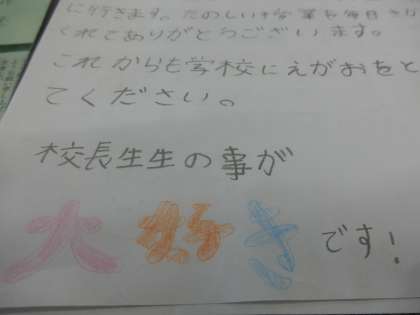 に行きます。たのしい授業を毎日
くれてありがとうございます。
これからも学校にえがおをと
てください。
校長生生の事が
大好きです!